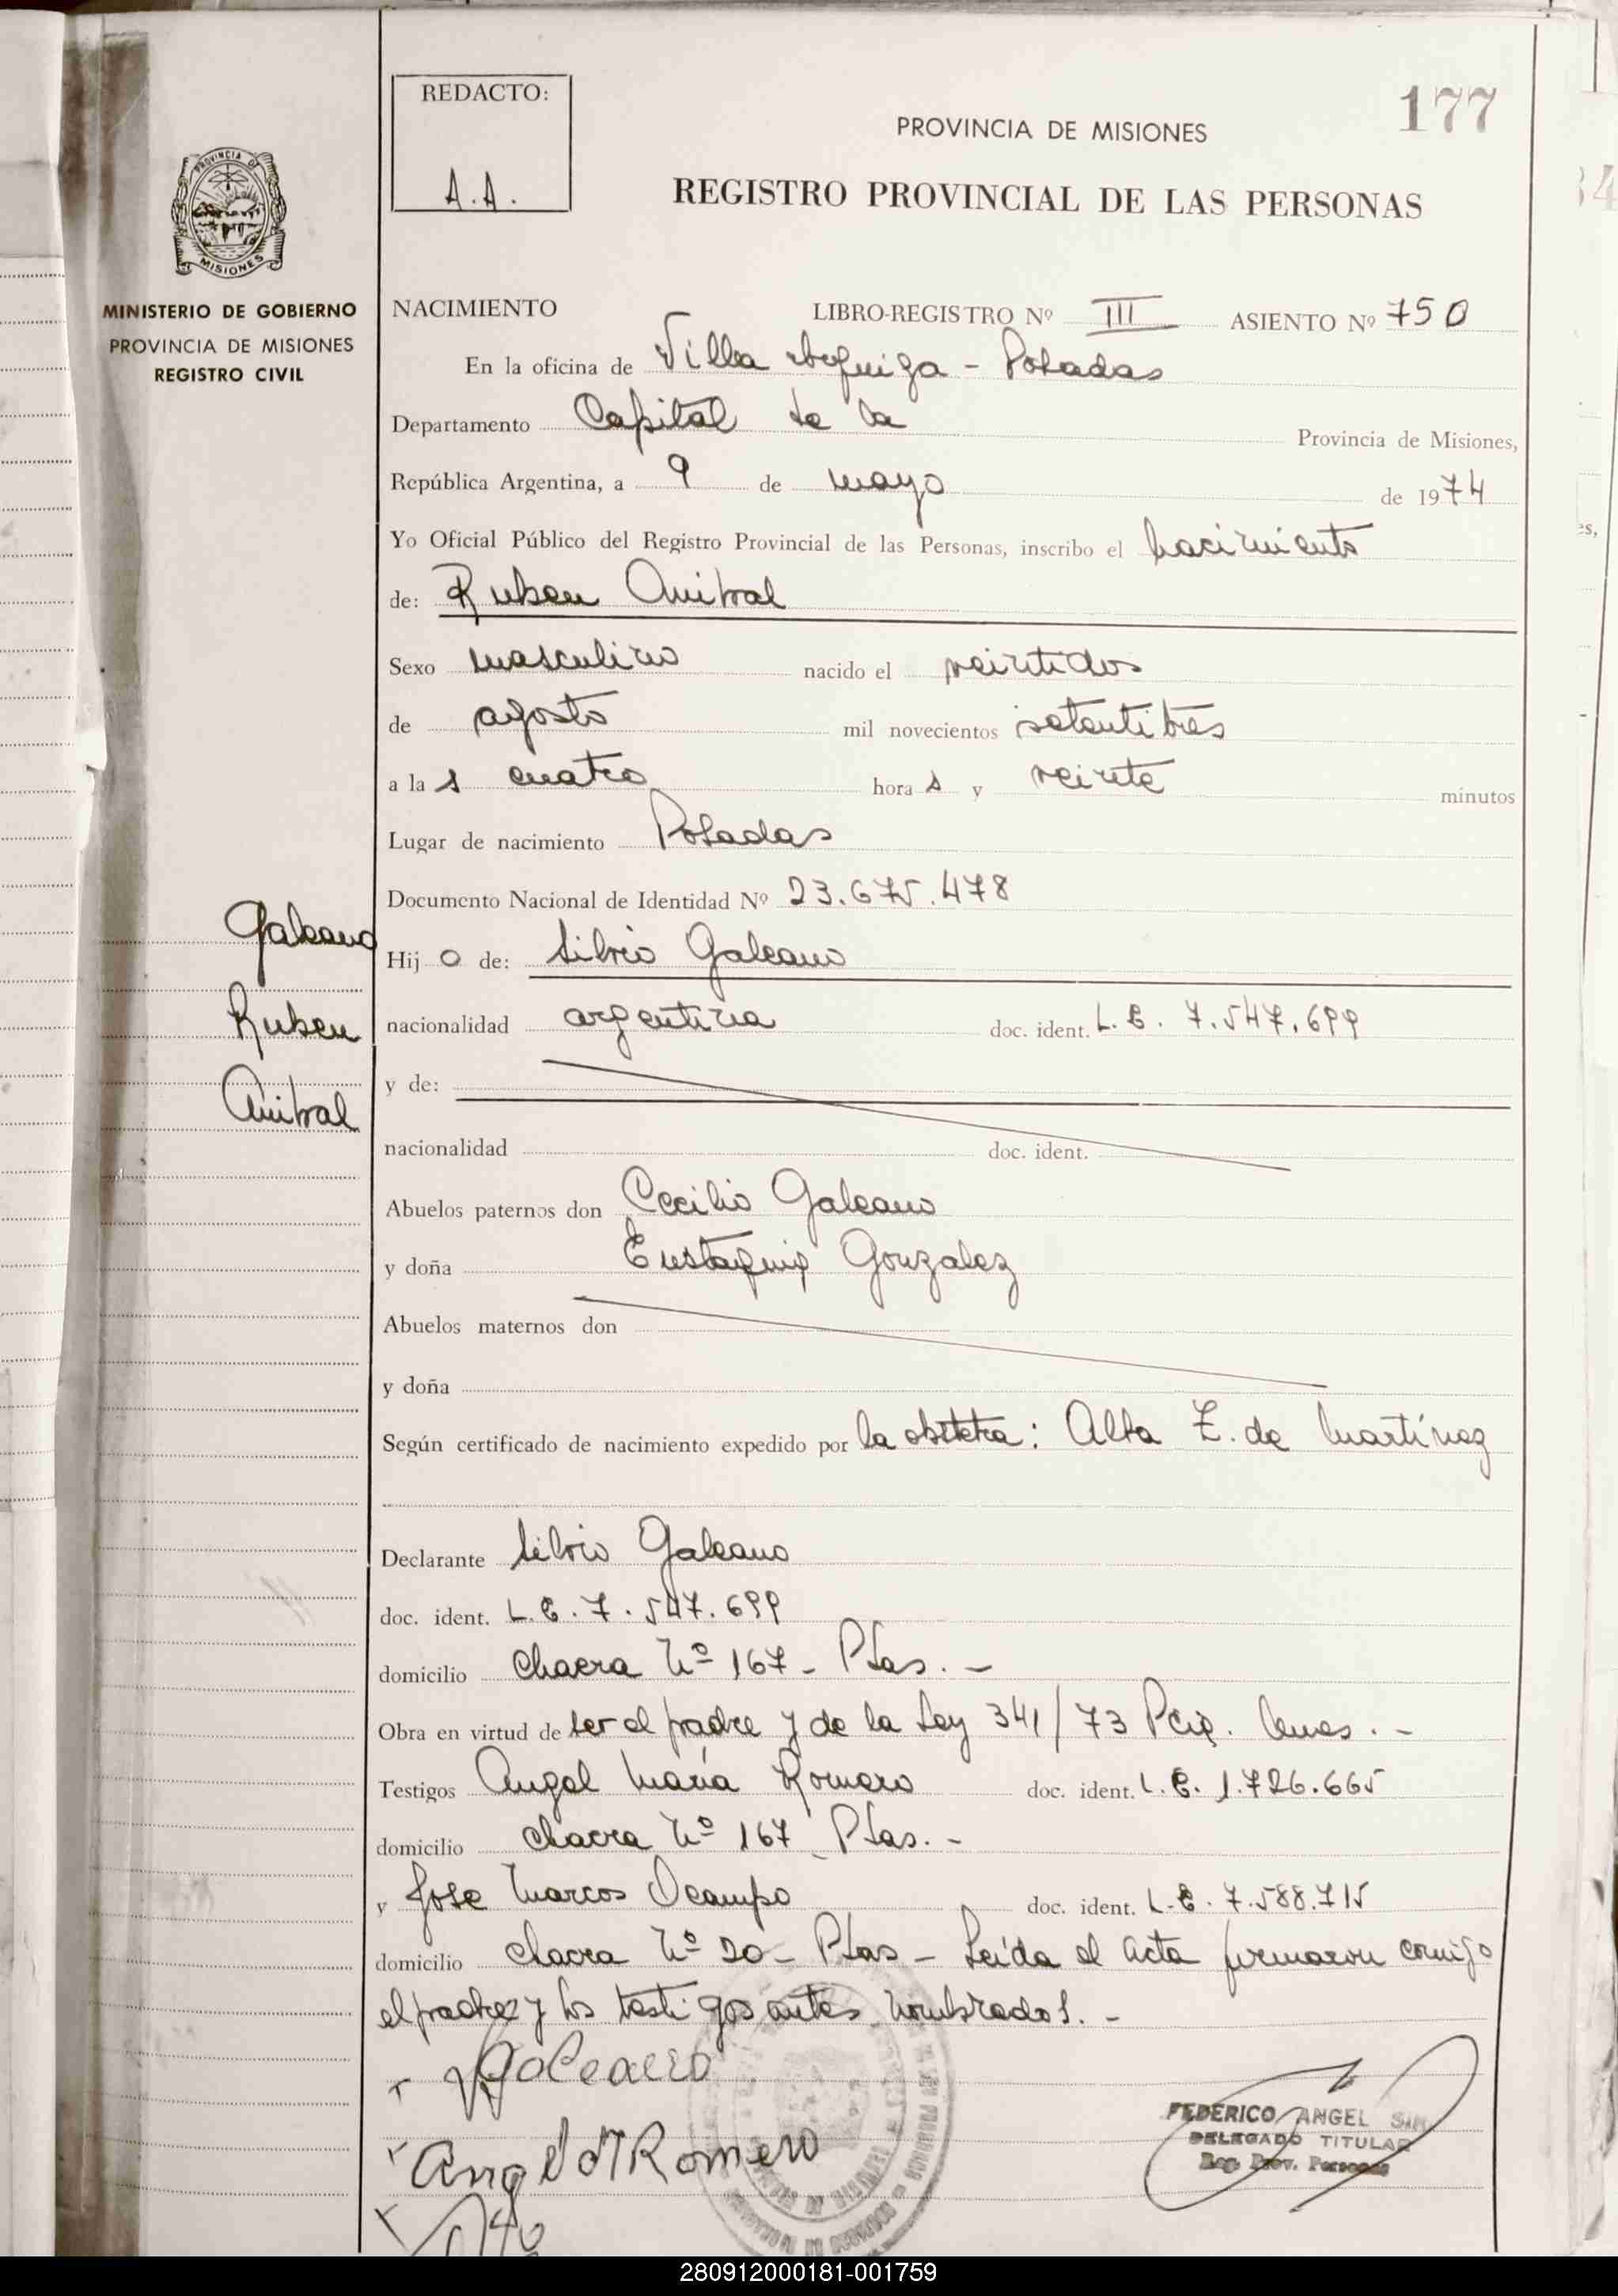 REDACTO:
A.A.
177
PROVINCIA DE MISIONES
REGISTRO PROVINCIAL DE LAS PERSONAS
PROVINCIA DE
MISIONES
MINISTERIO DE GOBIERNO
PROVINCIA DE MISIONES
REGISTRO CIVIL
NACIMIENTO LIBRO-REGISTRO Nº III ASIENTO Nº 750
En la oficina de Villa Urquiza - Posadas
Departamento Capital de la Provincia de Misiones,
República Argentina, a 9 de mayo de 1974
Yo Oficial Público del Registro Provincial de las Personas, inscribo el nacimiento
de: Ruben Anibal
Sexo masculino nacido el veintidos
de agosto mil novecientos setentitrés
a la s cuatro hora s y veinte minutos
Lugar de nacimiento Posadas
Documento Nacional de Identidad Nº 23.675.478
Galeano
Ruben
Anibal
Hij o de: Silvio Galeano
nacionalidad argentina doc. ident. L.E. 7.547.699
y de:
nacionalidad doc. ident.
Abuelos paternos don Cecilio Galeano
y doña Eustaquia Gonzalez
Abuelos maternos don
y doña
Según certificado de nacimiento expedido por la obstetra: Alba Z. de Martínez
Declarante Silvio Galeano
doc. ident. L.E. 7.547.699
domicilio chacra Nº 167 - Pdas. -
Obra en virtud de ser el padre y de la Ley 341/73 -
Testigos Angel María Romero doc. ident. L.E. 1.726.665
domicilio chacra Nº 167 Pdas. -
y Jose Marcos Ocampo doc. ident. L.E. 7.588.715
domicilio chacra Nº 20 - Pdas - Leída el acta firmaron conmigo
el padre y los testigos antes nombrados. -
Galeano
Angel M Romero
FEDERICO ANGEL
DELEGADO TITULAR
Reg. Prov. Personas
280912000181-001759